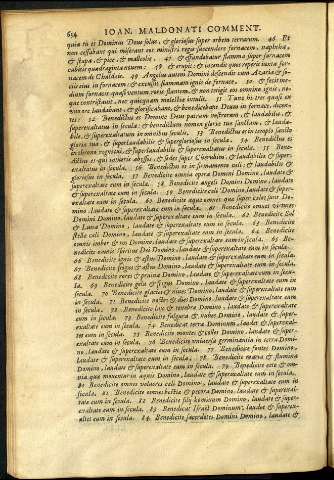 654 IOAN. MALDONATI COMMENT.
quia tu es Dominus Deus solus, & gloriosus super orbem terrarum. 46 Et
non cessabant qui miserant eos ministri regis succendere fornacem, naphtha,
& stupa, & pice, & malleolis, 47 & effundebatur flamma super fornacem
cubitis quadraginta nouem: 48 & erupit: & incendit quos reperit iuxta for-
nacem de Chaldæis. 49 Angelus autem Domini descendit cum Azaria & so-
ciis eius in fornacem: & excussit flammam ignis de fornace, 50 & fecit me-
dium fornacis quasi ventum roris flantem, & non tetigit eos omnino ignis, ne-
que contristauit, nec quicquam molestiæ intulit. 51 Tunc hi tres quasi ex
vno ore laudabant, & glorificabant, & benedicebant Deum in fornace, dicen-
tes: 52 Benedictus es Domine Deus patrum nostrorum, & laudabilis, &
superexaltatus in secula: & benedictum nomen gloriæ tuæ sanctum, & lauda-
bile, & superexaltatum in omnibus seculis. 53 Benedictus es in templo sancto
gloriæ tuæ, & superlaudabilis & supergloriosus in secula. 54 Benedictus es
in throno regni tui, & superlaudabilis & superexaltatus in secula. 55 Bene-
dictus es qui intueris abyssos, & sedes super Cherubim, & laudabilis & super-
exaltatus in secula. 56 Benedictus es in firmamento cæli: & laudabilis &
gloriosus in secula. 57 Benedicite omnia opera Domini Domino, laudate &
superexaltate eum in secula. 58 Benedicite angeli Domini Domino, laudate
& superexaltate eum in secula. 59 Benedicite cæli Domino, laudate & super-
exaltate eum in secula. 60 Benedicite aquæ omnes quæ super cælos sunt Do-
mino, laudate & superexaltate eum in secula. 61 Benedicite omnes virtutes
Domini Domino, laudate & superexaltate eum in secula. 62 Benedicite Sol
& Luna Domino, laudate & superexaltate eum in secula. 63 Benedicite
stellæ cæli Domino, laudate & superexaltate eum in secula. 64 Benedicite
omnis imber & ros Domino, laudate & superexaltate eum in secula. 65 Be-
nedicite omnes spiritus Dei Domino, laudate & superexaltate eum in secula.
66 Benedicite ignis & æstus Domino, laudate & superexaltate eum in secula.
67 Benedicite frigus & æstus Domino, laudate & superexaltate eum in secula.
68 Benedicite rores & pruina Domino, laudate & superexaltate eum in secu-
la. 69 Benedicite gelu & frigus Domino, laudate & superexaltate eum in
secula. 70 Benedicite glacies & niues Domino, laudate & superexaltate eum
in secula. 71 Benedicite noctes & dies Domino, laudate & superexaltate eum
in secula. 72 Benedicite lux & tenebræ Domino, laudate & superexaltate
eum in secula. 73 Benedicite fulgura & nubes Domino, laudate & super-
exaltate eum in secula. 74 Benedicat terra Dominum, laudet & superexal-
tet eum in secula. 75 Benedicite montes & colles Domino, laudate & super-
exaltate eum in secula. 76 Benedicite vniuersa germinantia in terra Domi-
no, laudate & superexaltate eum in secula. 77 Benedicite fontes Domino,
laudate & superexaltate eum in secula. 78 Benedicite maria & flumina
Domino, laudate & superexaltate eum in secula. 79 Benedicite cete & om-
nia quæ mouentur in aquis Domino, laudate & superexaltate eum in secula.
80 Benedicite omnes volucres cæli Domino, laudate & superexaltate eum in
secula. 81 Benedicite omnes bestiæ & pecora Domino, laudate & superexal-
tate eum in secula. 82 Benedicite filij hominum Domino, laudate & super-
exaltate eum in secula. 83 Benedicat Israel Dominum, laudet & superex-
altet eum in secula. 84 Benedicite sacerdotes Domini Domino, laudate &